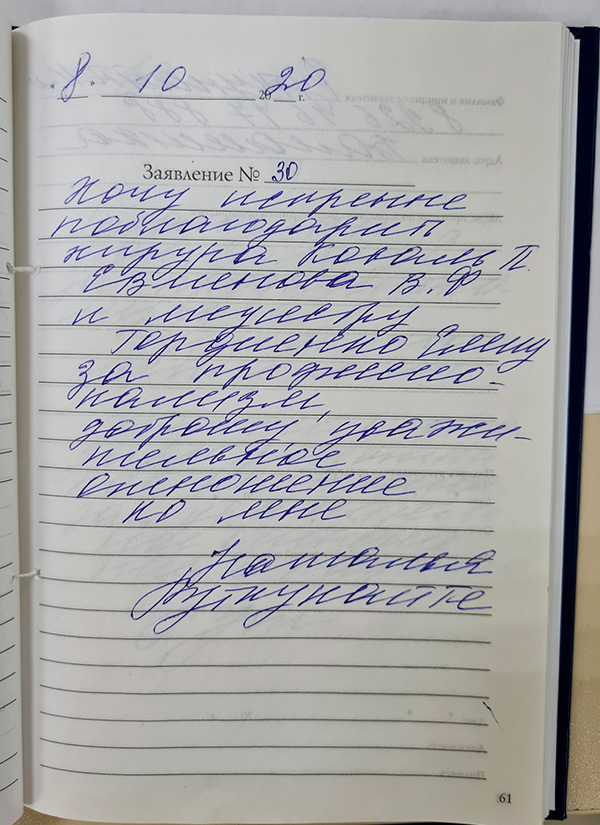 «8» 10 2020 г.
Заявление № 30
Хочу искренне
поблагодарить
хирурга Коваль П.
Евменова В.Ф
и медсестру
Гордиенко Елену
за профессио-
нализм,
доброту, уважи-
тельное
отношение
ко мне
Наталья
61